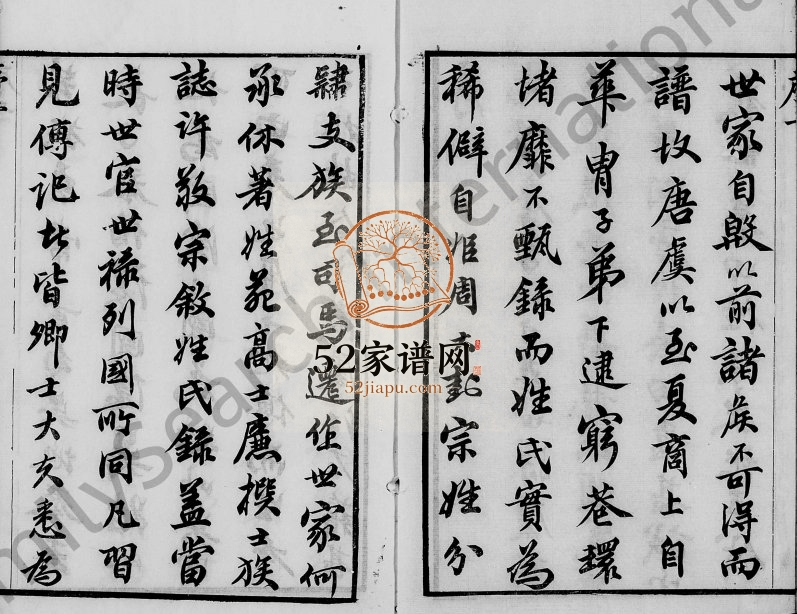 世家自殷以前諸侯不可得而
譜故唐虞以至夏商上自
華胄子弟下逮窮巷環
堵靡不甄錄而姓氏實為
稀僻自姬周宗姓分
肄支族至司馬遷作世家何
承休著姓苑高士廉撰士族
誌許敬宗敘姓氏錄蓋當
時世官世祿列國所同凡習
見傳記者皆卿士大夫悉為
52家谱网
52jiapu.com
FamilySearch International